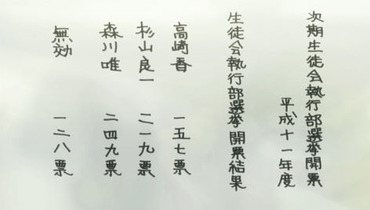 次期生徒会執行部選挙開票
平成十一年度
生徒会執行部選挙開票結果
高崎香 一五七票
杉山良一 二一九票
森川唯 二四九票
無効 一二八票